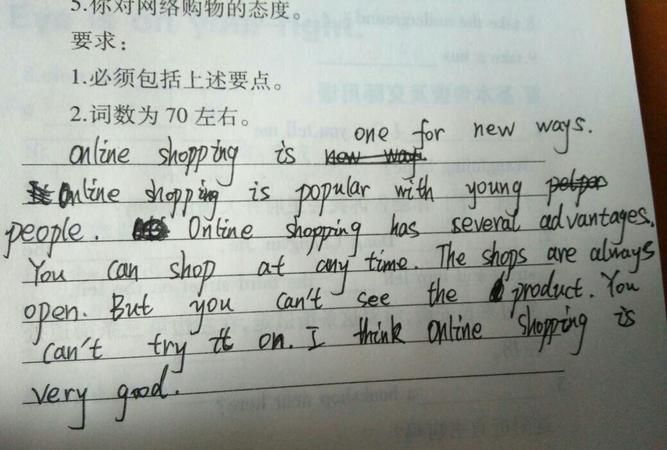 5.你对网络购物的态度。
要求：
1.必须包括上述要点。
2.词数为 70 左右。
Online shopping is one for new ways.
Online shopping is popular with young
people. Online shopping has several advantages.
You can shop at any time. The shops are always
open. But you can't see the product. You
can't try it on. I think online shopping is
very good.